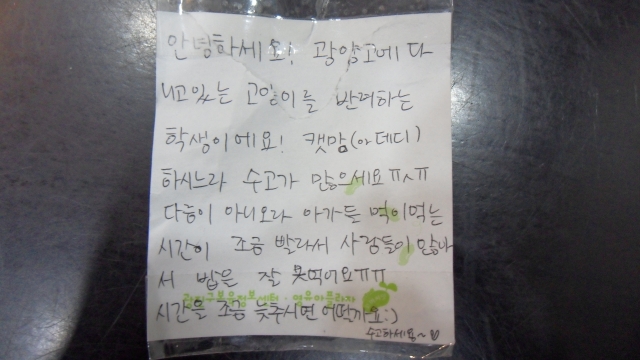 안녕하세요! 광양고에 다
니고있는 고양이를 반려하는
학생이에요! 캣맘(아데디)
하시느라 수고가 많으세요ㅠㅅㅠ
다름이 아니오라 아가들 먹이먹는
시간이 조금 빨라서 사람들이 많아
서 밥은 잘 못먹어요ㅠㅠ
시간을 조금 늦추시면 어떨까요:)
수고하세요~♡